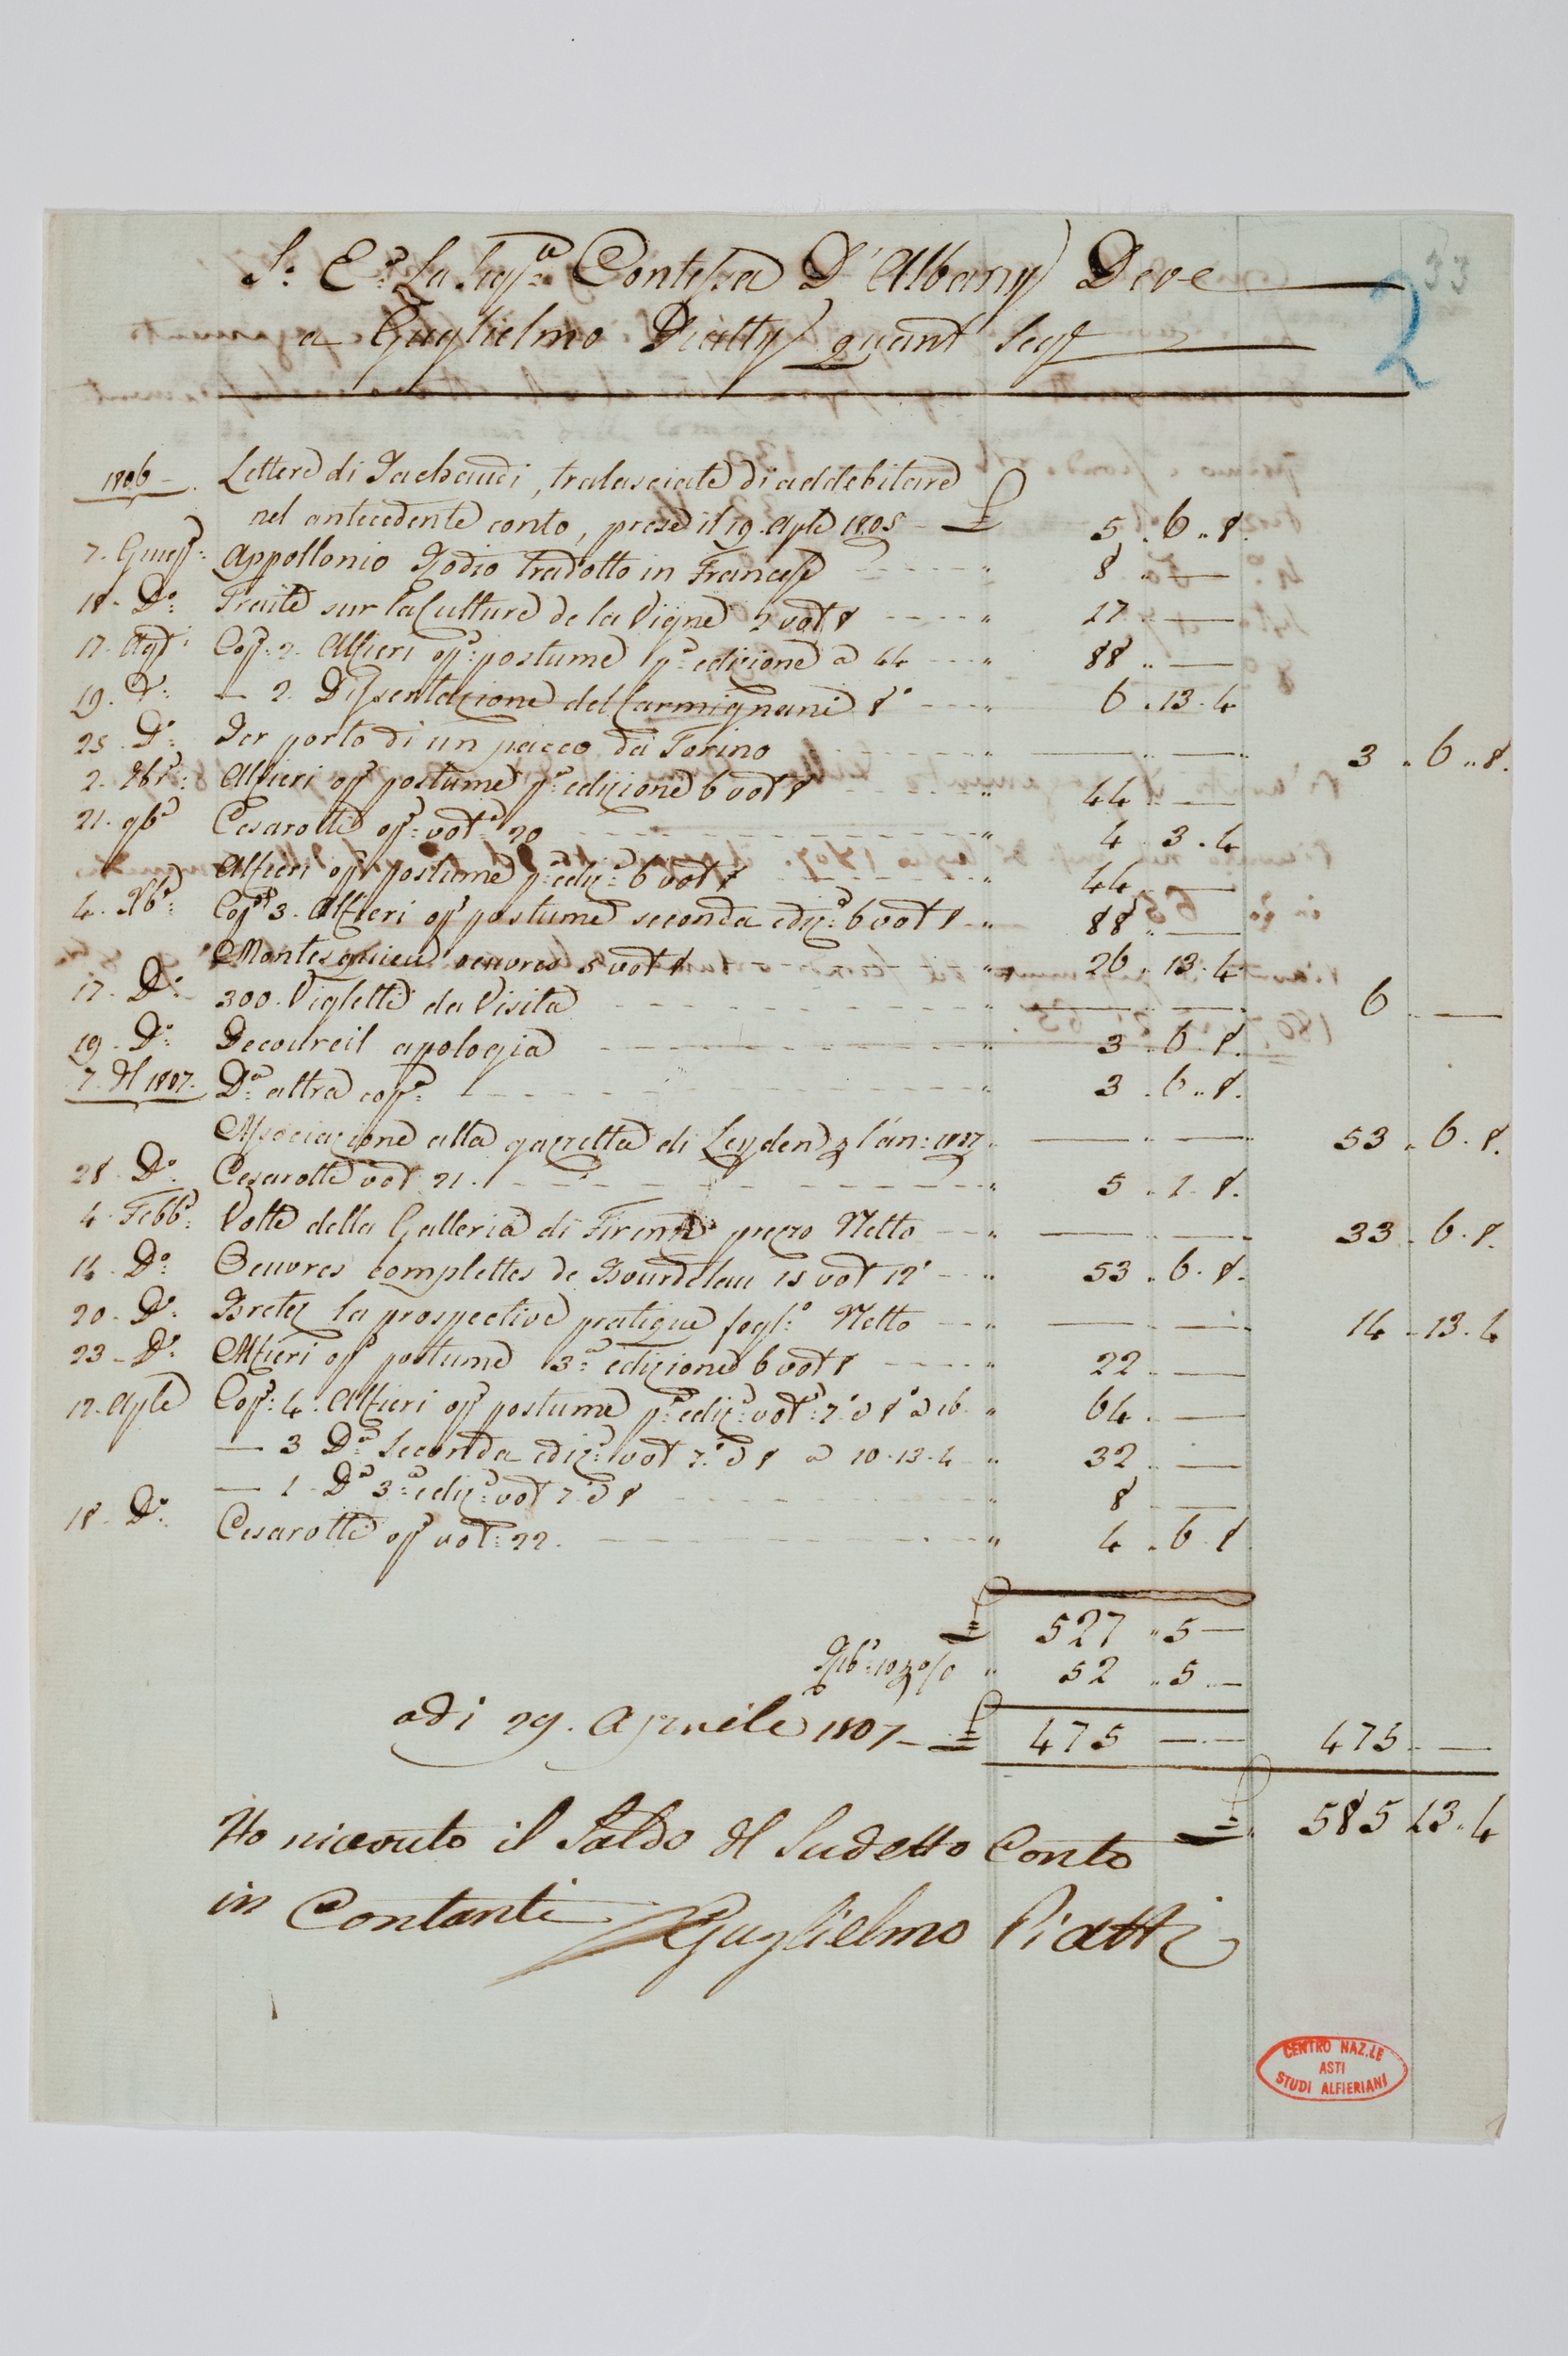 33
2
S. E. la Sig.ra Contessa D'Albany Deve
a Guglielmo Piatty quant segue
1806 Lettere di Paciaudi, tralasciate di addebitare
nel antecedente conto, prese il 19. Aple 1805 — £ 5 .. 6 .. 8
7. Appollonio Rodio tradotto in Francese — " 8 .. —
18. Do: Traité sur la Culture de la Vigne 2 vol 8 — " 17 .. —
17. Agt: Cop: 2. Alfieri op: postume pa: edizione a 44 — " 88 .. —
19. Do: — 2. Dissertazione del Carmignani 8o — " 6 . 13 . 4
25. Do: Per porto di un pacco da Torino — " — .. — 3 .. 6 .. 8.
2. Alfieri op: postume pa: edizione 6 vol 8 — " 44 .. —
21. 9be Cesarotti op: vol: 20 — " 4 . 3 . 4
Alfieri op: postume pa: ediz: 6 vol 8 — " 44 .. —
4. Xbe: Cop: 3. Alfieri op: postume seconda ediz: 6 vol 8 — " 88 .. —
Montesquieu oeuvres 5 vol 8 — " 26 . 13 . 4
17. Do: 300. Viglietti da Visita — " — .. — 6 .. —
19. Do: Decoureil apologia — " 3 . 6 . 8.
7. 1807. Da: altra cop: — " 3 . 6 .. 8.
Associazione alla gazzetta di Leyden p l'an: 1807 " — .. — 53 .. 6 . 8.
28. Do: Cesarotti vol 21. — " 5 . 1 . 8.
4. Febb: Volte della Galleria di Firenze prezzo Netto — " — .. — 33 . 6 . 8.
14. Do: Oeuvres complettes de Bourdelau 15 vol 12o — " 53 .. 6 . 8.
20. Do: Bretez la prospective pratique fogl: Netto — " — .. — 14 . 13 . 4
23. Do: Alfieri op: postume 3a: edizione 6 vol 8 — " 22 .. —
17. Aple Cop: 4. Alfieri op: postume pa: ediz: vol: 7.o 8o a 16 " 64 .. —
— 3 Da: seconda ediz: vol 7.o 8 a 10.13.4 — " 32 .. —
— 1 Da: 3a: ediz: vol 7 8 — " 8 .. —
18. Do: Cesarotti op: vol: 22. — " 4 .. 6 . 8
£ 527 .. 5 —
10 p % " 52 .. 5 .. —
adi 29. Aprile 1807 — £ 475 — . — 475 .. —
£ 585 13 . 4
Ho ricevuto il Saldo del Sudetto Conto
in Contanti Guglielmo Piatti
CENTRO NAZ.LE
ASTI
STUDI ALFIERIANI